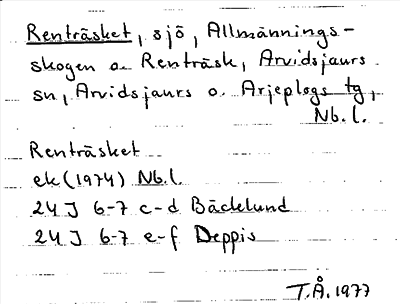 Renträsket, sjö, Allmännings-
skogen o. Renträsk, Arvidsjaurs
sn, Arvidsjaurs o. Arjeplogs tg,
Nb.l.
Renträsket
ek (1974) Nb.l.
24 J 6-7 c-d Bäcklund
24 J 6-7 e-f Deppis
T.Å. 1977